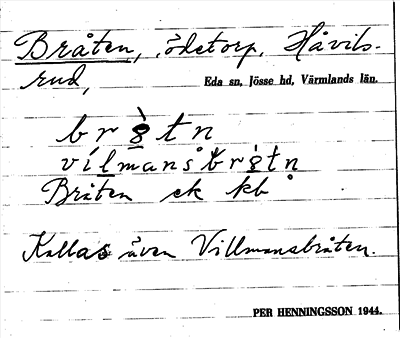 Bråten, ödetorp, Håvils-
rud,
Eda sn, Jösse hd, Värmlands län.
Bråten ek kb
Kallas även Villmansbråten.
PER HENNINGSSON 1944.